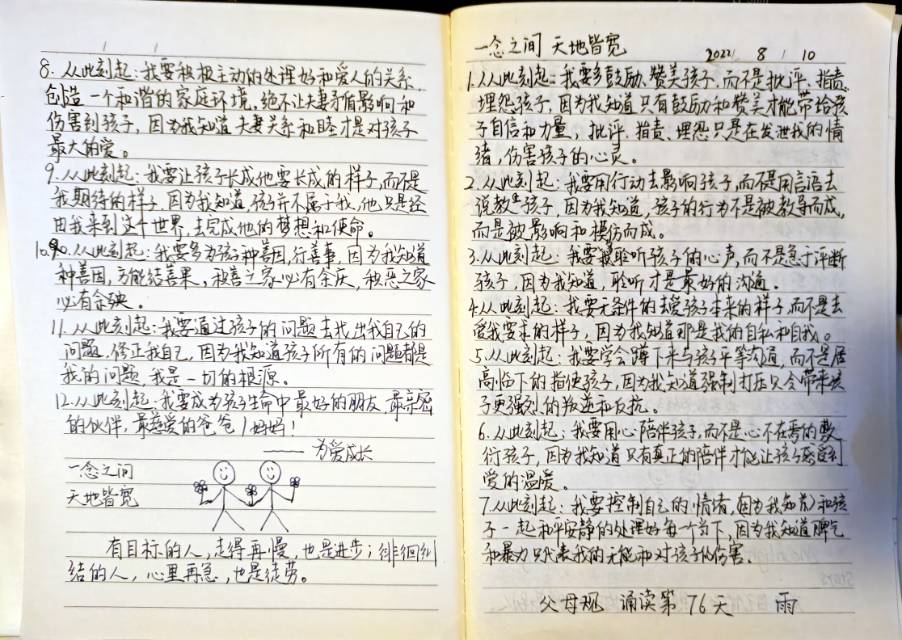 一念之间 天地皆宽
2022 8 10
1.从此刻起:我要多鼓励、赞美孩子,而不是批评、指责、
埋怨孩子,因为我知道只有鼓励和赞美才能带给孩
子自信和力量,批评、指责、埋怨只是在发泄我的情
绪,伤害孩子的心灵。
2.从此刻起:我要用行动去影响孩子,而不是用言语去
说教孩子,因为我知道,孩子的行为不是被教导而成,
而是被影响和模仿而成。
3.从此刻起:我要聆听孩子的心声,而不是急于评断
孩子,因为我知道,聆听才是最好的沟通。
4.从此刻起:我要无条件的去爱孩子本来的样子,而不是去
爱我要求的样子,因为我知道那是我的自私和自我。
5.从此刻起:我要学会蹲下来与孩子平等沟通,而不是居
高临下的指使孩子,因为我知道强制打压只会带来孩
子更强烈的叛逆和反抗。
6.从此刻起:我要用心陪伴孩子,而不是心不在焉的敷
衍孩子,因为我知道只有真正的陪伴才能让孩子感受到
爱的温暖。
7.从此刻起:我要控制自己的情绪,因为我知和孩
子一起和平安静的处理好每一个当下,因为我知道脾气
和暴力只代表我的无能和对孩子的伤害。
父母规 诵读第76天 雨
8.从此刻起:我要积极主动的处理好和爱人的关系,
创造一个和谐的家庭环境,绝不让夫妻矛盾影响和
伤害到孩子,因为我知道夫妻关系和睦才是对孩子
最大的爱。
9.从此刻起:我要让孩子长成他要长成的样子,而不是
我期待的样子,因为我知道,孩子并不属于我,他只是经
由我来到这个世界,去完成他的梦想和使命。
10.从此刻起:我要多为孩子种善因,行善事,因为我知道
种善因,方能结善果,积善之家必有余庆,积恶之家
必有余殃。
11.从此刻起:我要通过孩子的问题去找出我自己的
问题,修正我自己,因为我知道孩子所有的问题都是
我的问题,我是一切的根源。
12.从此刻起:我要成为孩子生命中最好的朋友,最亲密
的伙伴,最慈爱的爸爸/妈妈!
——为爱成长
一念之间
天地皆宽
有目标的人,走得再慢,也是进步;徘徊纠
结的人,心里再急,也是徒劳。